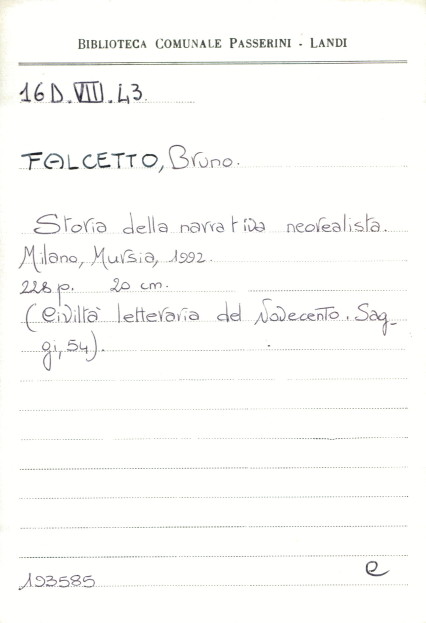 BIBLIOTECA COMUNALE PASSERINI - LANDI
16 D. VIII. 43.
FALCETTO, Bruno.
Storia della narrativa neorealista.
Milano, Mursia, 1992.
228 p. 20 cm.
(Civiltà letteraria del Novecento. Sag-
gi, 54).
193585
e